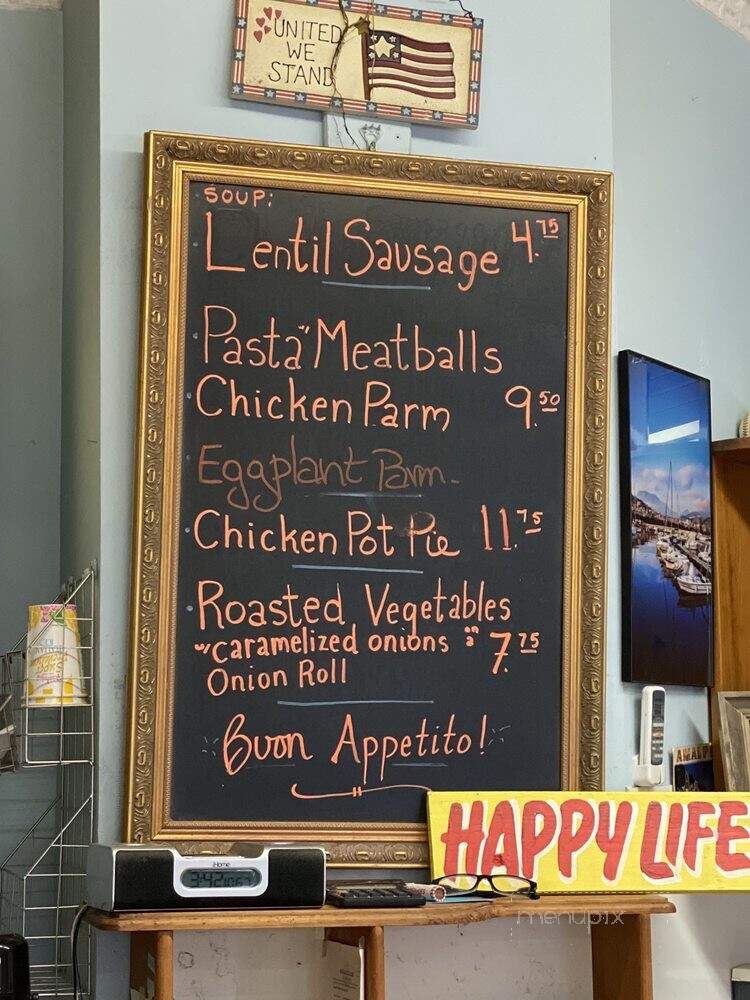 UNITED
WE
STAND
SOUP:
Lentil Sausage 4.75
Pasta "Meatballs
Chicken Parm 9.50
Eggplant Parm.
Chicken Pot Pie 11.75
Roasted Vegetables
caramelized onions 7.75
Onion Roll
Buon Appetito!
HAPPY LIFE
iHome
3:42
menupix